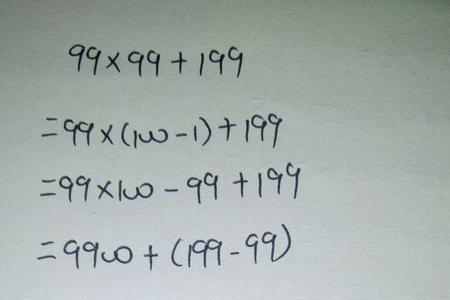 99×99+199
=99×(100-1)+199
=99×100-99+199
=9900+(199-99)